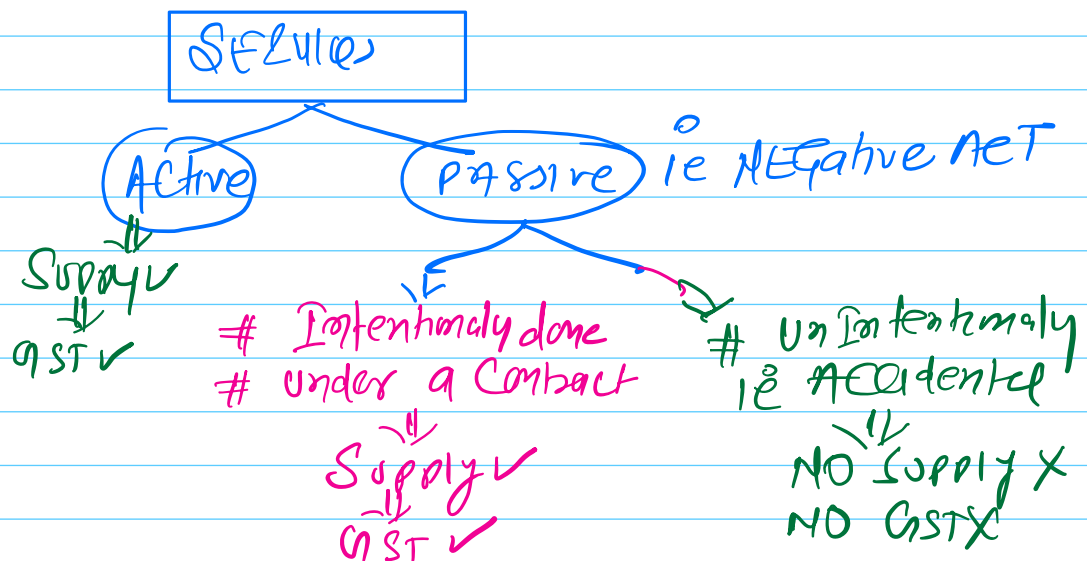 SERVICES
ACTIVE
PASSIVE ie NEGative ACT
Supply ✓
GST ✓
# Intentionaly done
# under a Contract
Supply ✓
GST ✓
# UnIntentionaly
ie ACCidental
NO Supply X
NO GST X